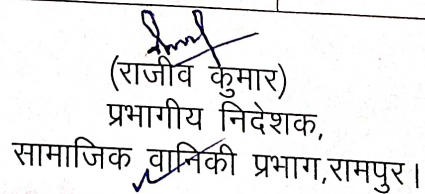 (राजीव कुमार)
प्रभागीय निदेशक,
सामाजिक वानिकी प्रभाग,रामपुर।